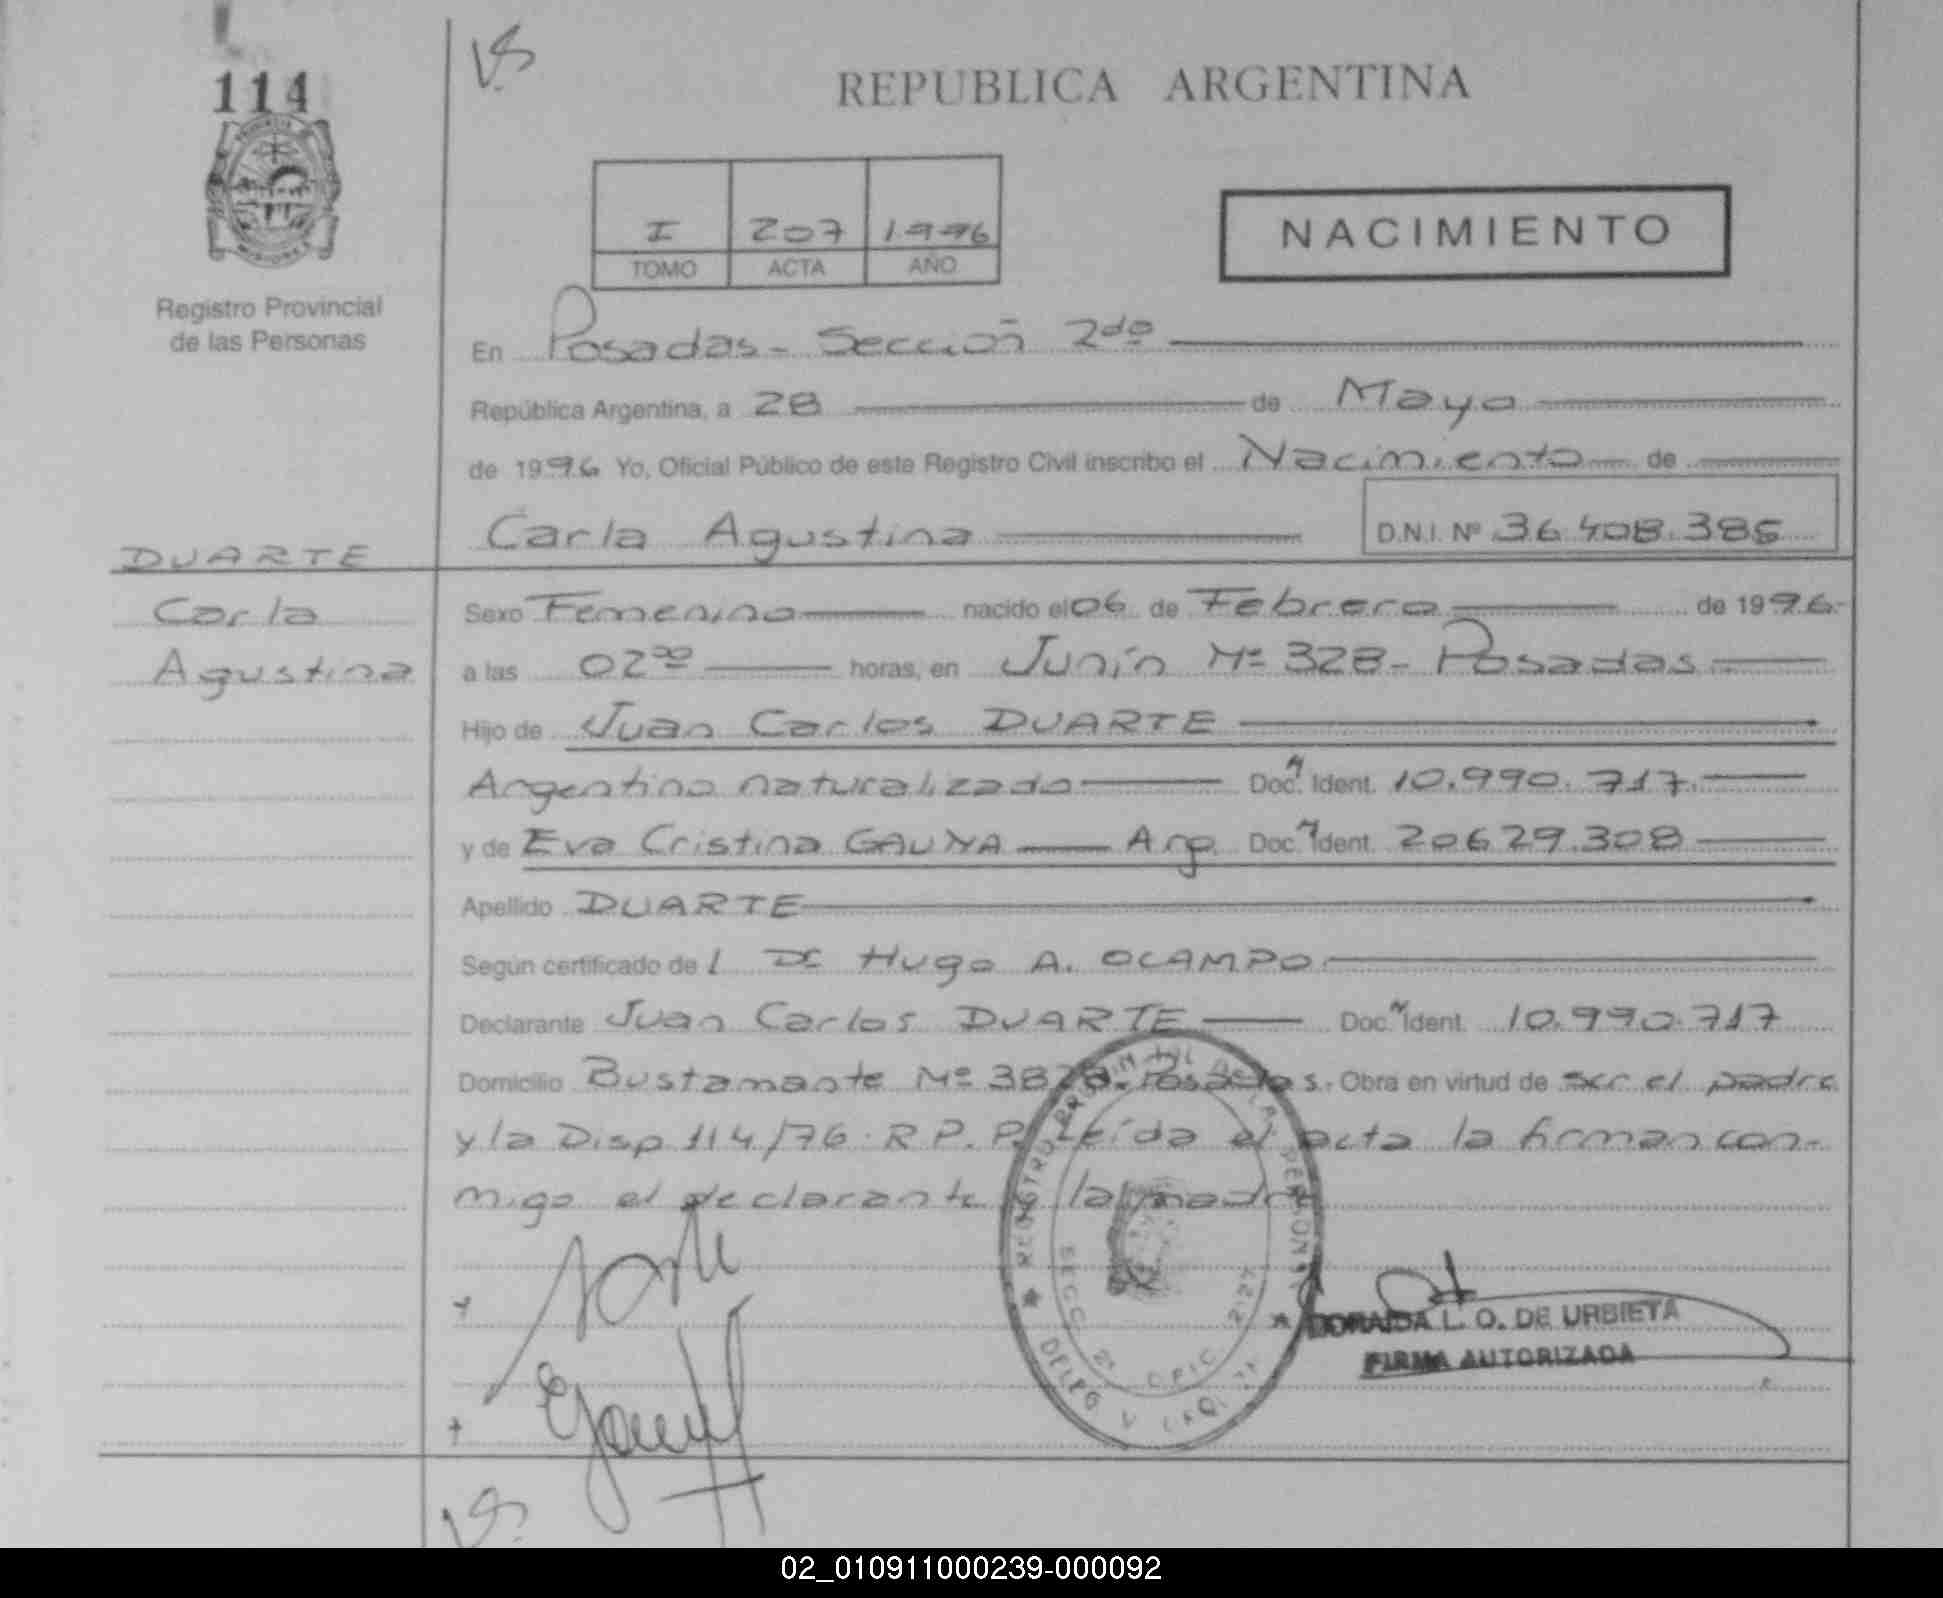 114
REPUBLICA ARGENTINA
I 207 1996
TOMO ACTA AÑO
NACIMIENTO
Registro Provincial
de las Personas
En Posadas - Sección 2do
República Argentina, a 28 de Mayo
de 1996 Yo, Oficial Público de este Registro Civil inscribo el Nacimiento de
Carla Agustina D.N.I. Nº 36.408.385
DUARTE
Carla
Agustina
Sexo Femenino nacido el 06 de Febrero de 1996
a las 02 00 horas, en Junín Nº 328 - Posadas
Hijo de Juan Carlos DUARTE
Argentino naturalizado Doc. Ident. 10.990.717
y de Eva Cristina GAUNA Arg. Doc. Ident. 20629.308
Apellido DUARTE
Según certificado de l Dr Hugo A. OCAMPO
Declarante Juan Carlos DUARTE Doc. Ident. 10.990.717
Domicilio Bustamante Nº Posadas. Obra en virtud de ser el padre
y la Disp 114/76 R.P.P. Leída el acta la firman con-
migo el declarante la madre
REGISTRO PROVINCIAL DE LAS PERSONAS
SECC. 2ª OFIC.
DORAIDA L. O. DE URBIETA
FIRMA AUTORIZADA
02_010911000239-000092